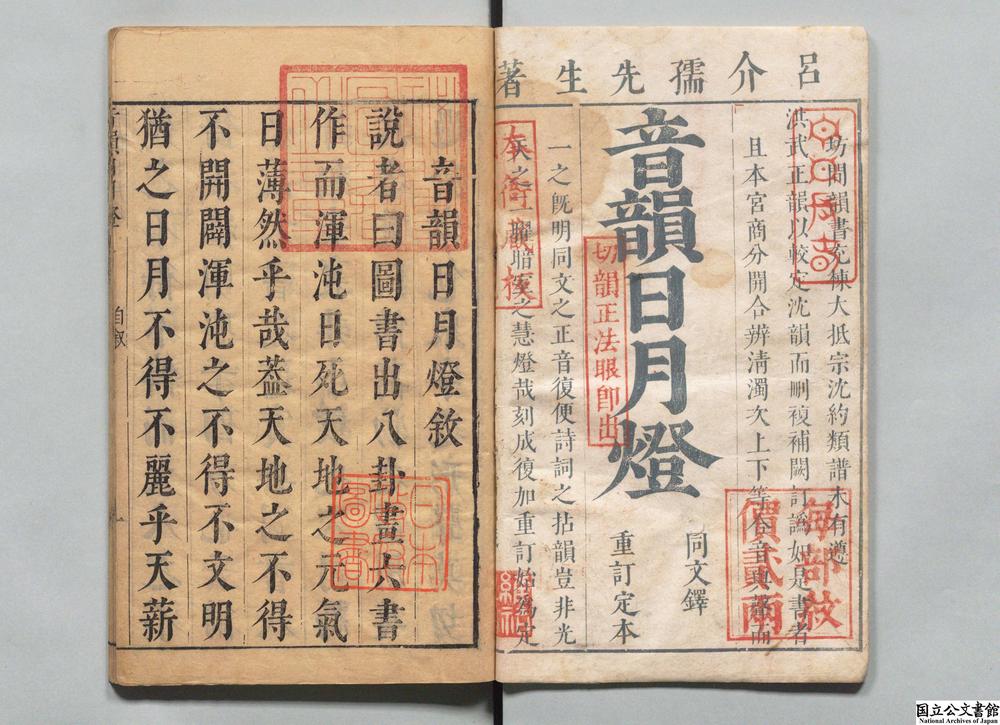 呂介孺先生著
坊間韻書充棟大抵宗沈約類譜未有遵
洪武正韻以較定沈韻而刪複補闕訂譌如是書者
且本宮商分開合辨清濁次上下等令音與聲而
音韻日月燈
同文鐸
重訂定本
一之既明同文之正音復便詩詞之拈韻豈非光
天之一曜暗夜之慧燈哉刻成復加重訂始為定
本衙藏板
切韻正法眼即出
每部紋
價壹兩
音韻日月燈敘
說者曰圖書出八卦畫六書
作而渾沌日死天地之元氣
日薄然乎哉葢天地之不得
不開闢渾沌之不得不文明
猶之日月不得不麗乎天薪
自敘
一
日本
圖書
国立公文書館
National Archives of Japan